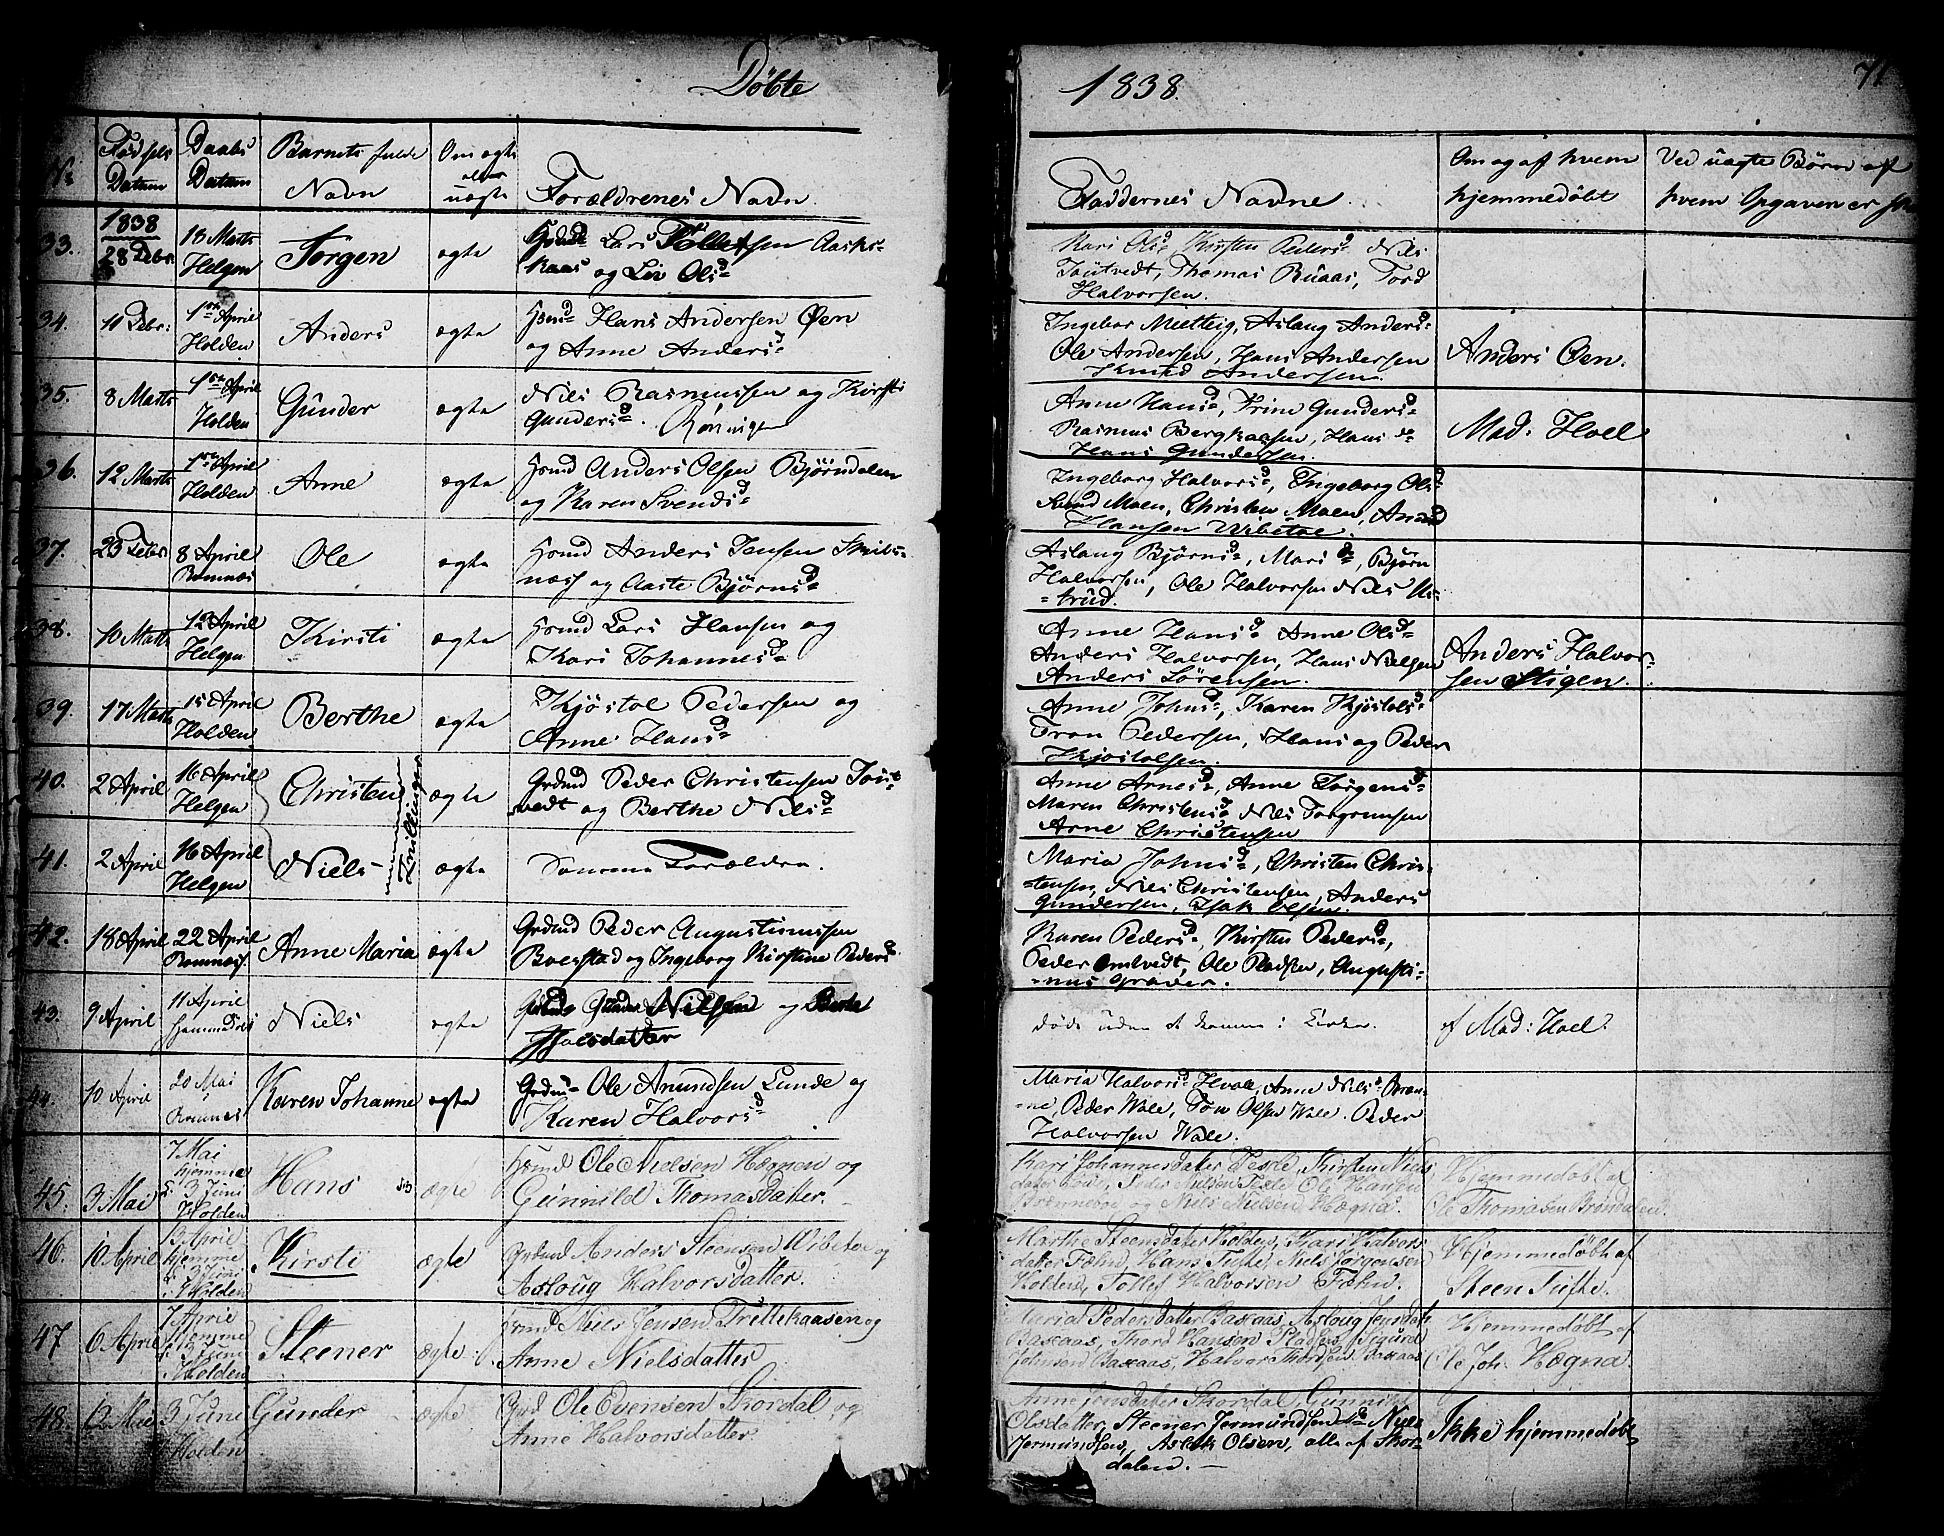 Døbte
1838.
71
No
Fødsels Datum
Daabs Datum
Barnets fulde Navn
Om ægte eller uægte
Forældrenes Navn.
Faddernes Navne.
Om og af hvem hjemmedøbt
Ved uægte Børn af hvem Opgaven er
33. 1838 28 Febr: 18 Marts Helgen Jørgen ægte
Grdmd Lars Tollefsen Aaskaas og Liv Olsd
Kari Olsd, Kirsten Pedersd Niels
Thomas Buaas, Tord
Halvorsen.
34. 11 Febr: 1ste April Holden Anders ægte
Hsmd Hans Andersen Øen
og Anne Andersd
Aslaug Andersd
Ole Andersen, Hans Andersen
Knud Andersen.
Anders Øen.
35. 8 Marts 1ste April Holden Gunder ægte
Niels Rasmussen og Kirsti
Gundersd. Røningen
Anne Hansd, Trine Gundersd
Rasmus Bergkaasen, Hans
Hans Gundersen.
Mad: Hoel
36. 12 Marts 1ste April Holden Anne ægte
Hsmd Anders Olsen Bjørndalen
og Karen Svendsd
Ingeborg Halvorsd, Ingeborg Olsd
Svend Moen, Christen Moen,
Hansen Wibetoe.
37. 23 Febr: 8 April Romnæs Ole ægte
Hsmd Anders Jensen
næss og Aaste Bjørnsd
Aslaug Bjørnsd, Mari do, Bjørn
Halvorsen, Ole Halvorsen Niels
38. 10 Marts 12 April Helgen Kirsti ægte
Hsmd Lars Hansen og
Kari Johannesd
Anne Hansd Anne Olsd
Anders Halvorsen, Hans Nielsen
Anders Sørensen.
Anders Halvor-
sen Stigen.
39. 17 Marts 15 April Holden Berthe ægte
Kjøstol Pedersen og
Anne Hansd
Anne Johnsd, Karen Kjøstolsd
Tron Pedersen, Hans og Peder
Kjøstolsen.
40. 2 April 16 April Helgen Christen Tvillinger ægte
Grdmd Peder Christensen Tout
vedt og Berthe Nielsd
Anne Arnesd, Anne Jørgensd
Maren Christensd Niels Torgrimsen
Arne Christensen
41. 2 April 16 April Helgen Niels ægte
Samme Forældre.
Maria Johnsd, Christen Chris-
tensen, Niels Christensen, Anders
Gundersen, Isak Olsen.
42. 18 April 22 April Romnæs Anne Maria ægte
Grdmd Peder Augustinussen
Boerstad og Ingeborg Kirstine Pedersd
Karen Pedersd, Kirsten Pedersd,
Peder Omtvedt, Ole Pladsen, Augusti-
nus Graver.
43. 9 April 11 April hjemmedøbt Niels ægte
Grdmd Gunder Nielsen og Berte
døde uden at komme i Kirken.
af Mad: Hoel.
44. 10 April 20 Mai Romnes Karen Johanne ægte
Grdmd Ole Amundsen Lunde og
Karen Halvorsd
Maria Halvorsd Hvale, Anne Nielsd
Peder Wale, Tov Olsen Wale. Peder
Halvorsen Wale.
45. 3 Mai 7 Mai hjemme 3 Juni Holden Hans ægte
Hsmd Ole Nielsen Hægnen og
Gunnild Thomasdatter.
Kari Johannesdatter Texle, Kirsten Niels
Ole Hansen
og Niels Nielsen Hægna.
Hjemmedøbt af
Ole Thomasen Brøndalen.
46. 10 April 13 April hjemme 3 Juni i Holden Kirsti ægte
Grdmd Anders Steensen Wibetoe og
Asloug Halvorsdatter.
Marthe Steensdatter Holden, Kari Halvors
datter Fæhn, Hans Tufte, Niels Jørgensen
Holden, Tollef Halvorsen Fæhn.
Hjemmedøbt af
Steen Tufte.
47 6 April 7 April hjemme 3 Juni Holden Steener ægte
Hsmd Niels Jensen Trittekaasen og
Anne Nielsdatter
Maria Pedersdatter Baxaas, Asloug Jensdatr
Baxaas, Thord Hansen Pladsen, Sigurd
Johnsen Baxaas, Halvor Thordsen Baxaas
Hjemmedøbt af
Ole Joh. Hægna.
48. 12 Mai 3 Juni Holden Gunder ægte
Grd Ole Evensen Skordal og
Anne Halvorsdatter.
Anne Jensdatter Skordal Gunnild
Olsdatter, Steener Jermundsen
Jermundsen, Aslak Olsen, alle af Skor-
dalen.
Ikke hjemmedøbt